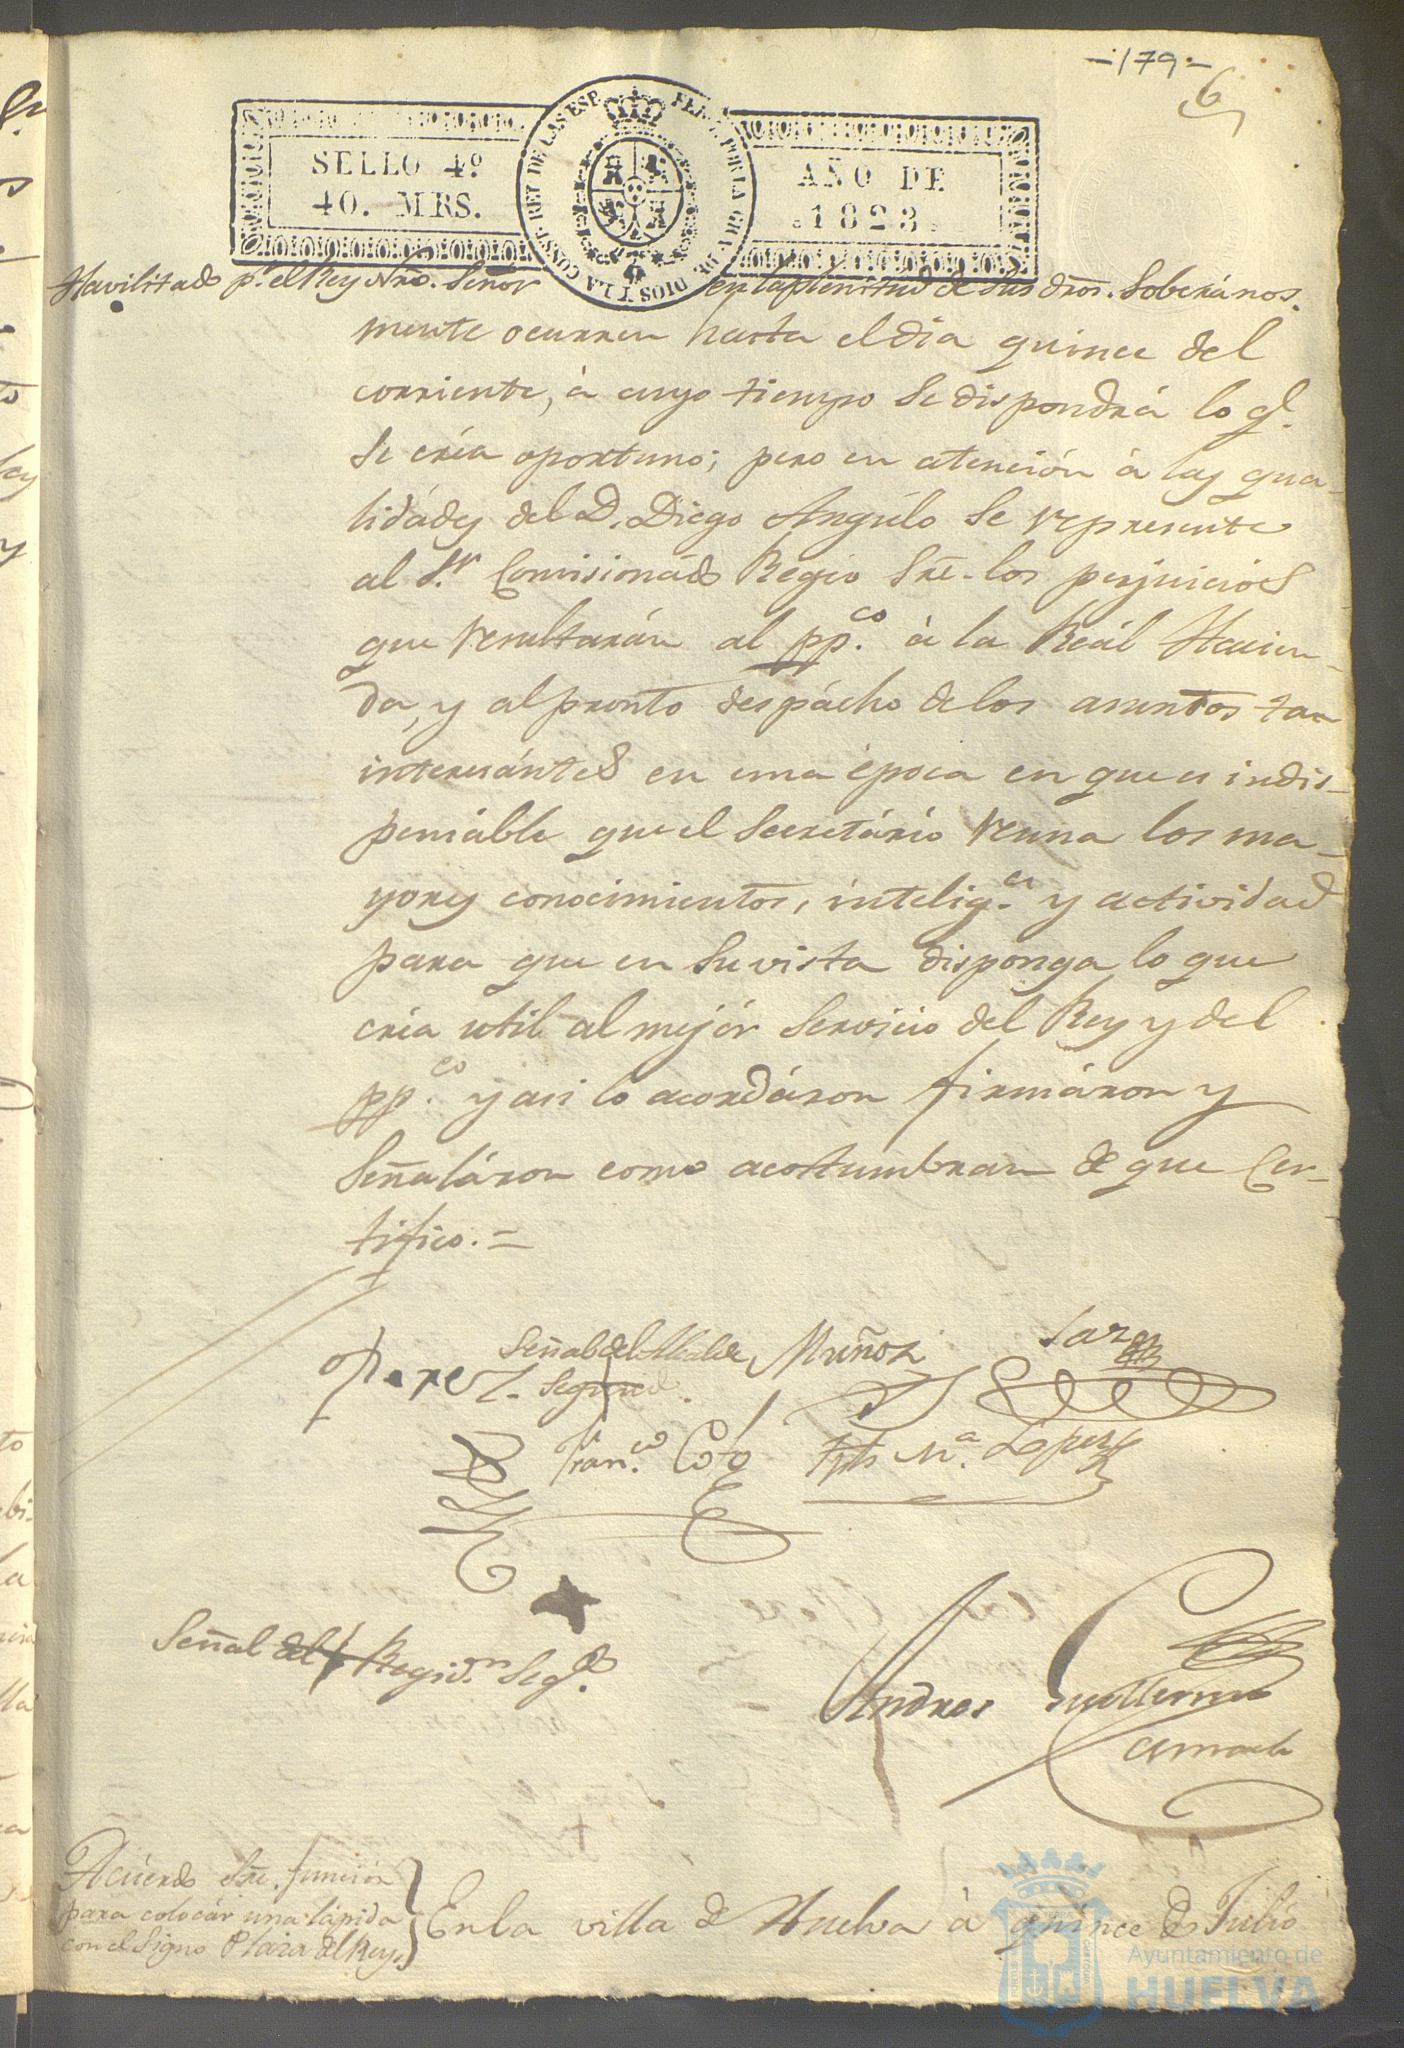 -179-
6
SELLO 4º
40. MRS.
FERN. 7. POR LA GRA. DE DIOS Y LA CONST. REY DE LAS ESP.
AÑO DE
1823.
Havilitado pr. el Rey Nro. Señor en la plenitud de sus dros. Soberános.
mente ocurren hasta el dia quince del
corriente, à cuyo tiempo se dispondrá lo ql.
se créa oportuno; pero en atención à las qua-
lidádes del D. Diego Angúlo se represente
al Sr. Comisionádo Regio Sre. los perjuicios
que resultarán al ppco. à la Reál Hacien-
da, y al pronto despácho de los asuntos tan
interesántes en una época en que es indis-
pensáble que el Secretário reuna los ma-
yores conocimientos, inteliga. y actividad
para que en su vista disponga lo que
créa util al mejór servicio del Rey y del
ppco. y asi lo acordáron firmáron y
señaláron como acostumbran de que Cer-
tifico.=
Perez. Señal del Alcalde Muñoz
Segundo.
Franco. Coto Jph Ma. Lopez
Señal del Regidor. Segdo.
Andres Guillermo
Camacho
Acuerdo Sre. función
para colocár una lápida
con el signo Plaza del Rey.
En la villa de Huelva à quince de Julio
Ayuntamiento de
HUELVA